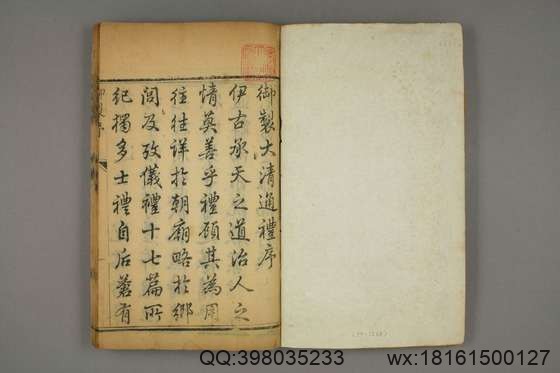 御製大清通禮序
伊古承天之道治人之
情莫善乎禮顧其為用
往往詳於朝廟略於鄉
閭及攷儀禮十七篇所
紀獨多士禮自后蒼有
QQ:398035233
wx:18161500127